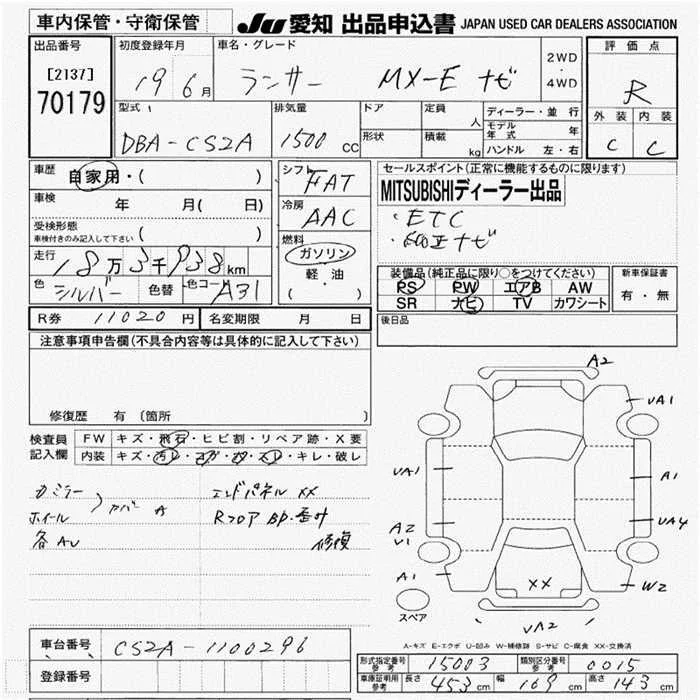 車内保管・守衛保管
JU 愛知 出品申込書 JAPAN USED CAR DEALERS ASSOCIATION
出品番号 初度登録年月 車名・グレード 2WD 評価点
[2137] 19 6月 ランサー MX-E ナビ ・ R
70179 4WD
型式 排気量 ドア 定員 人 ディーラー・並行 外装 内装
DBA-CS2A 1500 CC 形状 積載 kg モデル年式 年 C C
ハンドル 左・右
車歴 自家用・( ) シフト FAT セールスポイント(正常に機能するものに限ります)
車検 年 月( 日) 冷房 AAC MITSUBISHIディーラー出品
受検形態 ・ETC
車検付きのみ記入して下さい ( ) 燃料 ガソリン
走行 18万3千938km 軽・油 装備品(純正品に限り○をつけてください) 新車保証書
色 シルバー 色替 色コード A31 ( ・ ) PS PW エアB AW 有・無
SR ナビ TV カワシート
R券 11020円 名変期限 月 日 後日品
注意事項申告欄(不具合内容等は具体的に記入して下さい)
修復歴 有(箇所 )
検査員 FW キズ・飛石・ヒビ割・リペア跡・X要
記入欄 内装 キズ・汚レ・コゲ・穴・スレ・キレ・破レ
エンドパネル XX
ホイール A Rフロア
各AU 修復
A2
UA1
UA1 A1
A2 UA4
V1
A1 XX W2
スペア UA2
A-キズ E-エクボ U-凹み W-補修跡 S-サビ C-腐食 XX-交換済
車台番号 CS2A-1100296
登録番号
形式指定番号 参考 15003 類別区分番号 参考 0015
車庫証明用 参考 長さ 453cm 幅 169cm 高さ 143cm